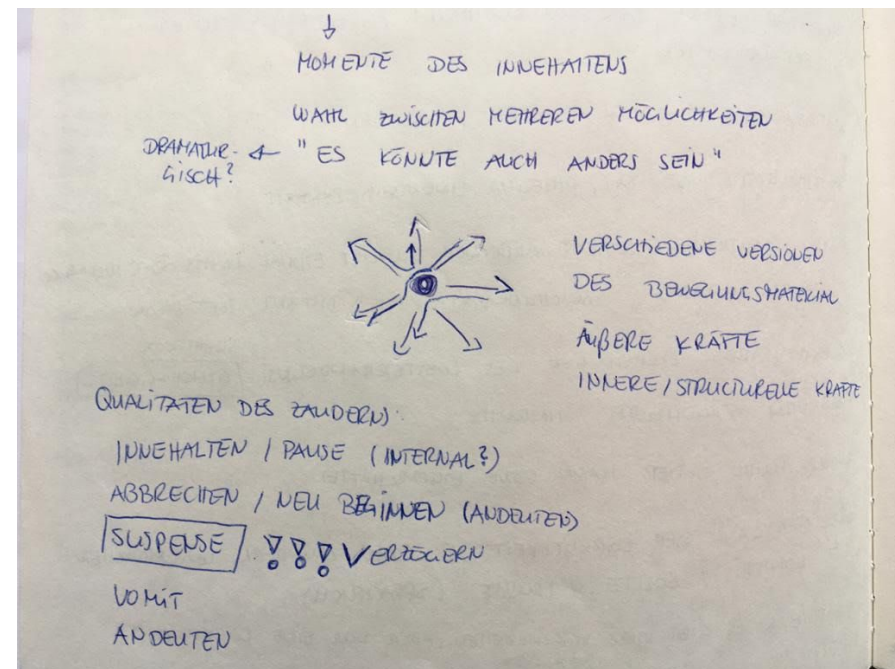 MOMENTE DES INNEHALTENS
WAHL ZWISCHEN MEHREREN MÖGLICHKEITEN
DRAMATUR-
GISCH?
"ES KÖNNTE AUCH ANDERS SEIN"
VERSCHIEDENE VERSIONEN
DES BEWEGUNGSMATERIAL
ÄUßERE KRÄFTE
INNERE/STRUCTURELLE KRÄFTE
QUALITÄTEN DES ZAUDERNS:
INNEHALTEN / PAUSE (INTERNAL?)
ABBRECHEN / NEU BEGINNEN (ANDEUTEN)
SUSPENSE !!! VERZÖGERN
VOMIT
ANDEUTEN